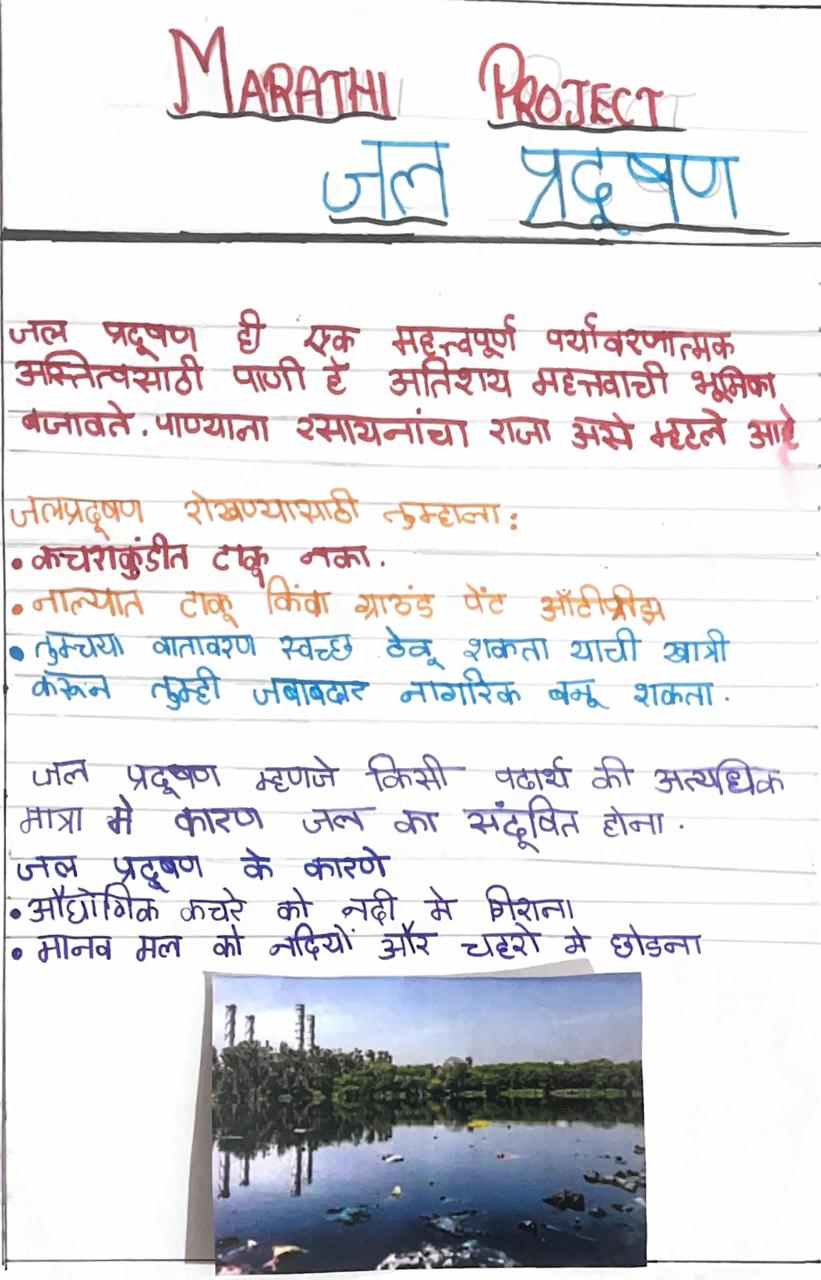 MARATHI PROJECT
जल प्रदूषण
जल प्रदूषण ही एक महत्त्वपूर्ण पर्यावरणात्मक
अस्तित्वसाठी पाणी हे अतिशय महत्तवाची भूमिका
बजावते. पाण्याना रसायनांचा राजा असे म्हटले आहे
जलप्रदूषण रोखण्यासाठी तुम्हाला:
• कचराकुंडीत टाकू नका.
• नाल्यात टाकू किंवा ग्राउंड पेंट अँटीफ्रीझ
• तुमचया वातावरण स्वच्छ ठेवू शकता याची खात्री
करून तुम्ही जबाबदार नागरिक बनू शकता.
जल प्रदूषण म्हणजे किसी पदार्थ की अत्यधिक
मात्रा मे कारण जल का संदूषित होना.
जल प्रदूषण के कारणे
• औद्योगिक कचरे को नदी मे गिराना
• मानव मल को नदियों और चहरो मे छोडना